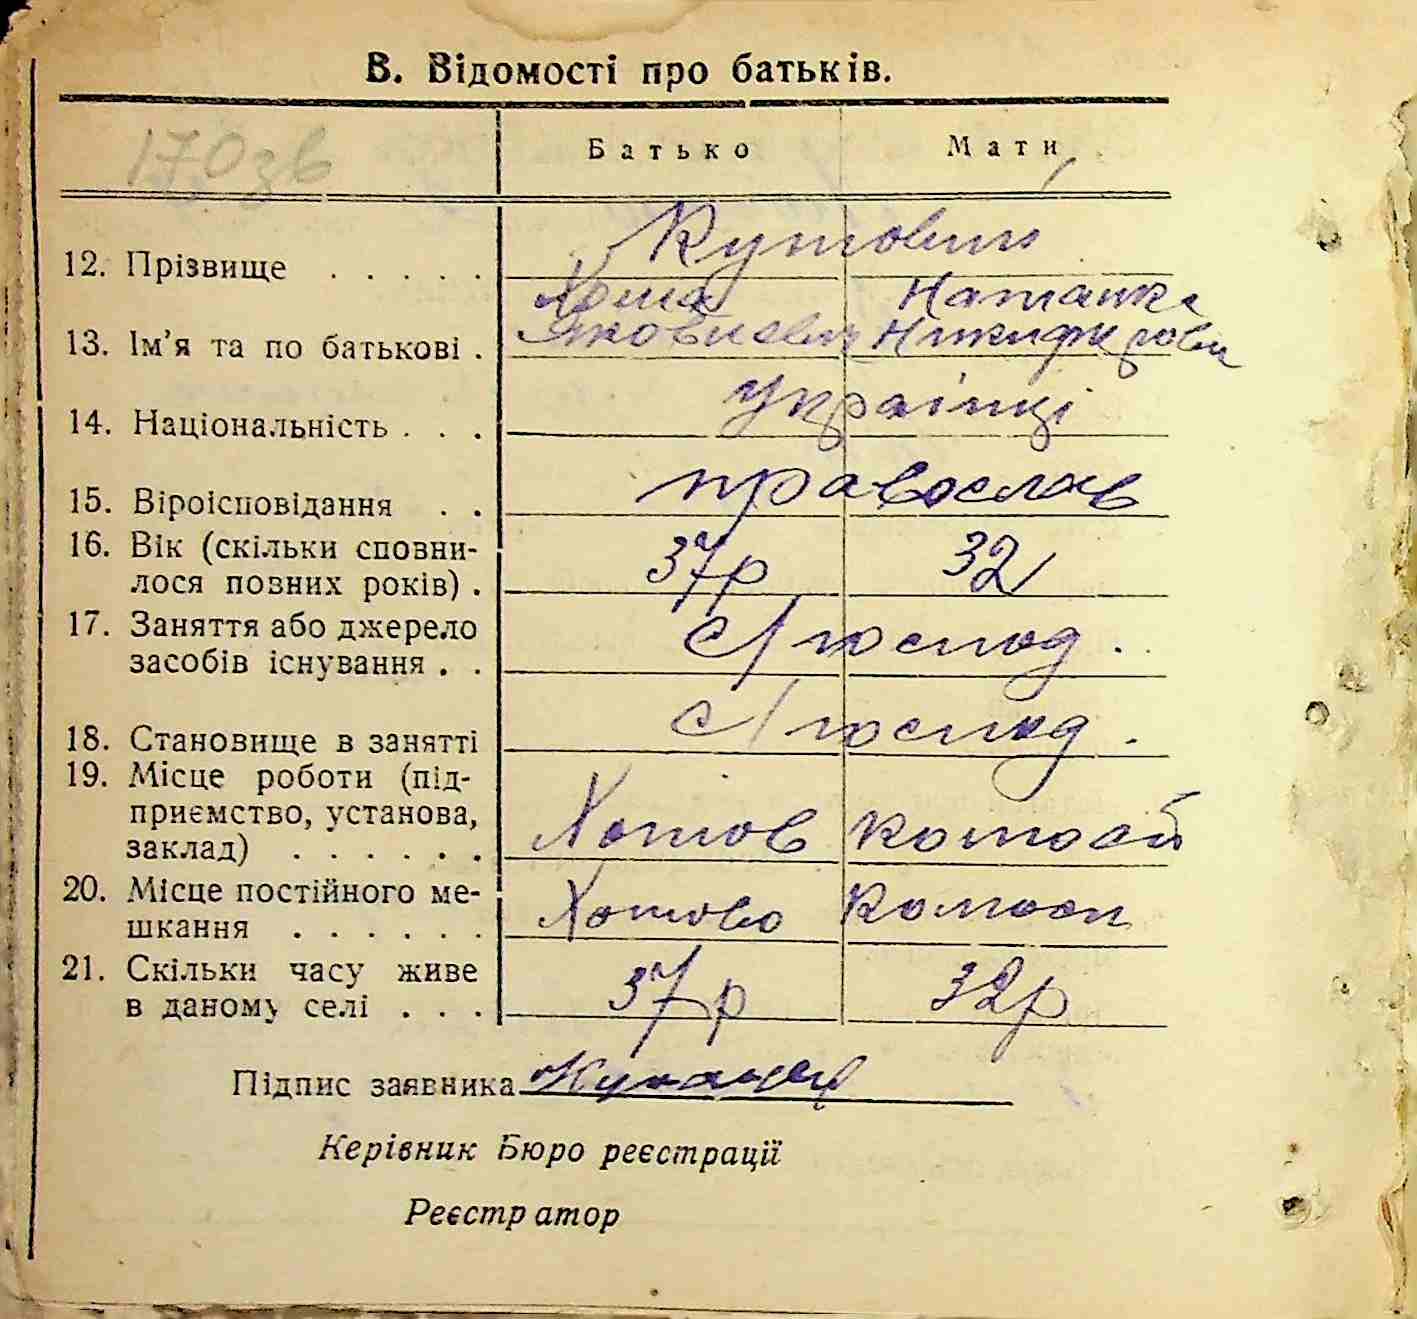 В. Відомості про батьків.
170 зв
Батько Мати
12. Прізвище . . . . . Кутовий
Хома Наталка
13. Ім'я та по батькові . Яковлевич Никифорови
14. Національність . . . українці
15. Віроісповідання . . православ
16. Вік (скільки сповни-
лося повних років) . 37р 32
17. Заняття або джерело
засобів існування . . с/господ.
18. Становище в занятті с/господ.
19. Місце роботи (під-
приємство, установа,
заклад) . . . . . . Хотов
20. Місце постійного ме-
шкання . . . . . . Хотово
21. Скільки часу живе
в даному селі . . . 37р 32р
Підпис заявника
Керівник Бюро реєстрації
Реєстратор